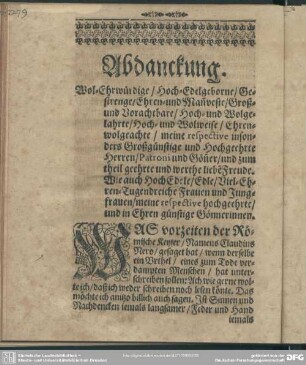 Abdanckung.
Wol-Ehrwürdige / Hoch-Edelgeborne / Ge-
strenge / Ehren- und Mañveste / Groß-
und Vorachtbare / Hoch- und Wolge-
lahrte / Hoch- und Wolweise / Ehrn-
wolgeachte / meine respectivè inson-
ders Großgünstige und Hochgeehrte
Herren / Patroni und Göñer / und zum
theil geehrte und werthe liebe Freude.
Wie auch Hoch Edele / Edle / Viel-Eh-
ren-Tugendreiche Frauen und Jung-
frauen / meine respectivè hochgeehrte /
und in Ehren günstige Gönnerinnen.
WAS vorzeiten der Rö-
mische Keyser / Namens Claudius
Nero / gesaget hat / wenn derselbe
ein Urthel / eines zum Tode ver-
dampten Menschen / hat unter-
schreiben sollen: Ach wie gerne wol-
te ich / daß ich weder schreiben noch lesen könte. Das
möchte ich anitzo billich auch sagen. Ist Sinnen und
Nachdencken jemals langsamer / Feder und Hand
jemals